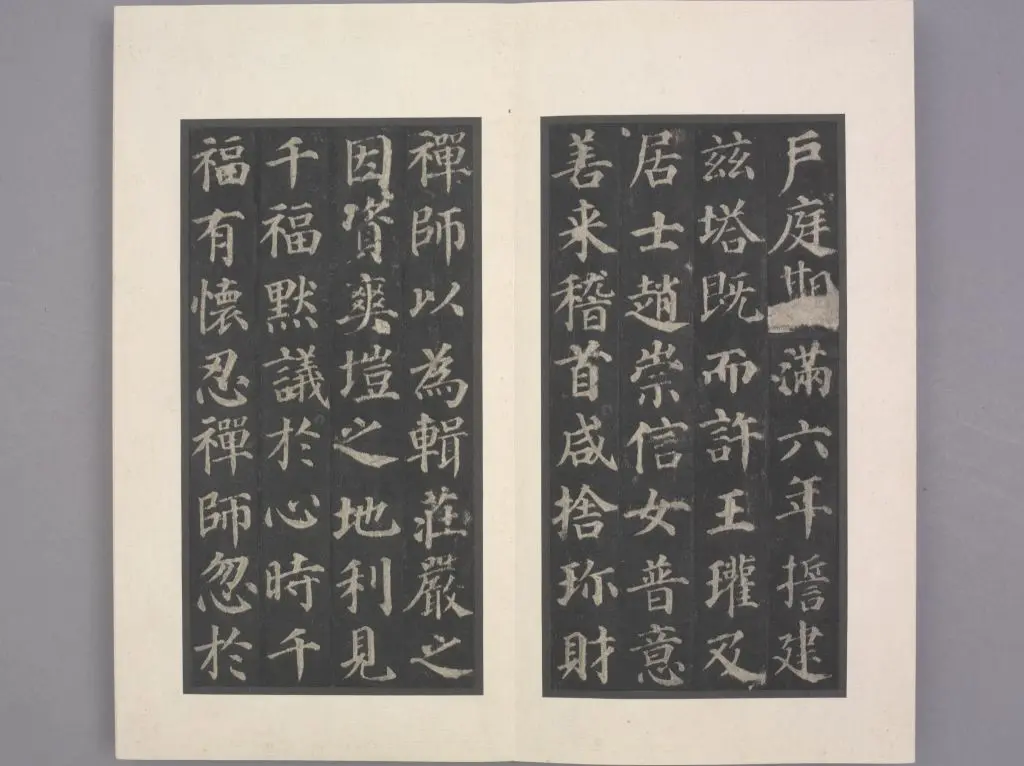 戶庭期滿六年誓建
茲塔既而許王瓘及
居士趙崇信女普意
善来稽首咸捨珎財
禪師以為輯莊嚴之
因資爽塏之地利見
千福默議於心時千
福有懷忍禪師忽於